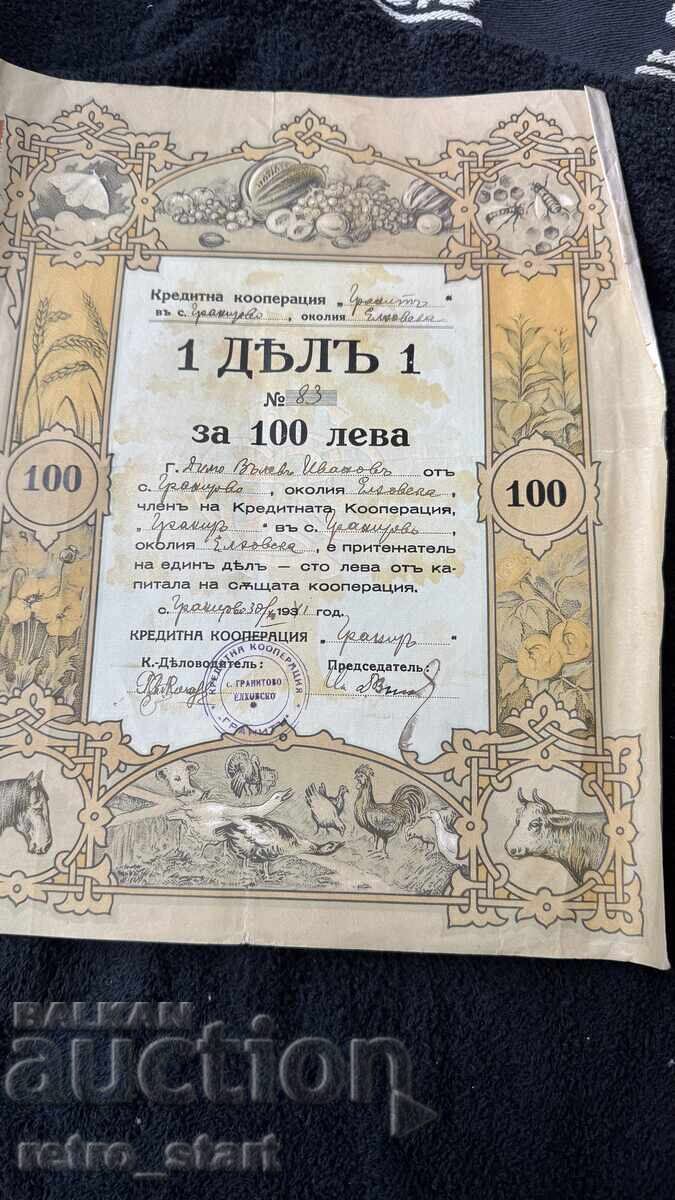 Кредитна кооперация „Гранитъ“
въ с. Гранитово, околия Елховска
1 ДѢЛЪ 1
№ 83
за 100 лева
г. Димо Вълевъ Ивановъ отъ
с. Гранитово, околия Елховска,
членъ на Кредитната Кооперация,
„Гранитъ“ въ с. Гранитово,
околия Елховска, е притежатель
на единъ дѣлъ — сто лева отъ ка-
питала на сѫщата кооперация.
с. Гранитово 30/XII 1931 год.
КРЕДИТНА КООПЕРАЦИЯ „Гранитъ“
К.-Дѣловодитель: Председатель:
КРЕДИТНА КООПЕРАЦИЯ
с. ГРАНИТОВО
ЕЛХОВСКО
„ГРАНИТЪ“
100
100
BALKAN
auction
retro_start